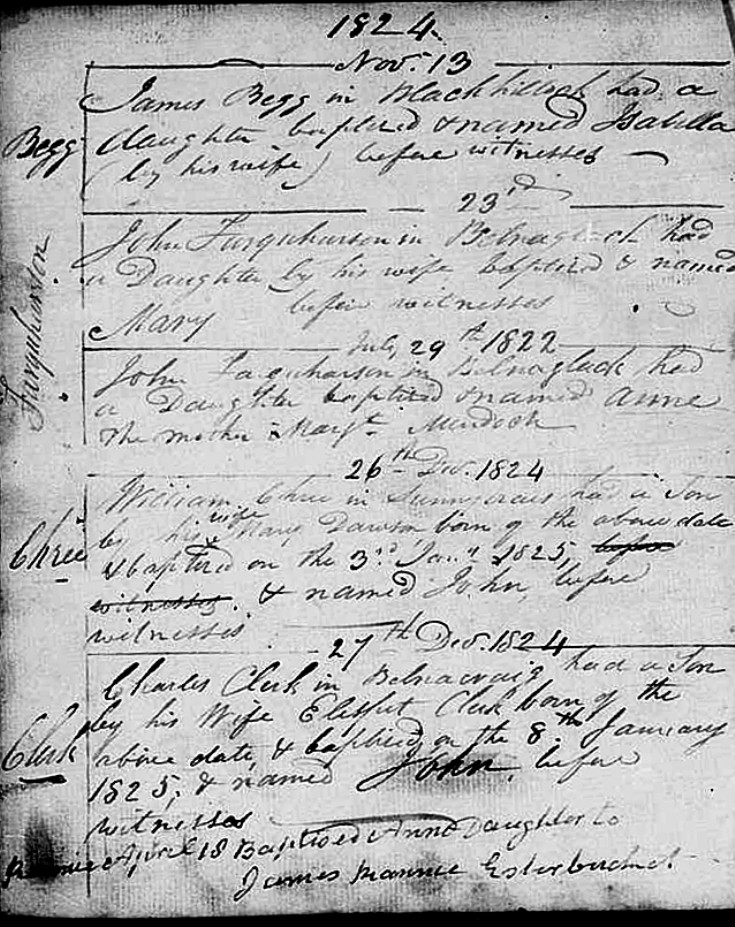 1824.
Nov. 13
James Begg in Blackhillock had a
Begg daughter baptized & named Isabella
(by his wife) before witnesses
23rd
John Farquharson in Belnaglack had
a Daughter by his wife baptized & named
Mary before witnesses
Farquharson
July 29th 1822
John Farquharson in Belnaglack had
a Daughter baptized & named Anne
the mother Margt. Murdoch
26th Dec. 1824
William Chree in had a Son
by his wife Mary Dawson born of the above date
Chree & baptized on the 3rd Jany. 1825, before
witnesses. & named John, before
witnesses
27th Dec. 1824
Charles Clerk in Belnacraig had a Son
by his Wife Elispet Clerk born of the
Clerk above date, & baptized on the 8th January
1825, & named John, before
witnesses
April 18 Baptised Anne Daughter to
James